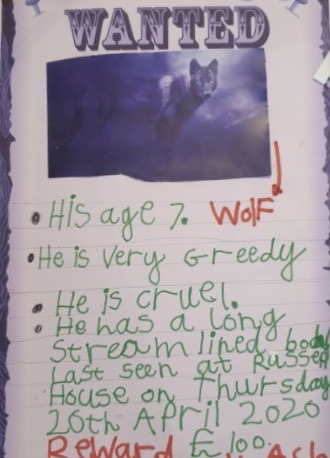 WANTED
His age 7. Wolf
He is very Greedy
He is cruel.
He has a long
streamlined body
Last seen at Russell
House on Thursday
26th April 2020
Reward £100.